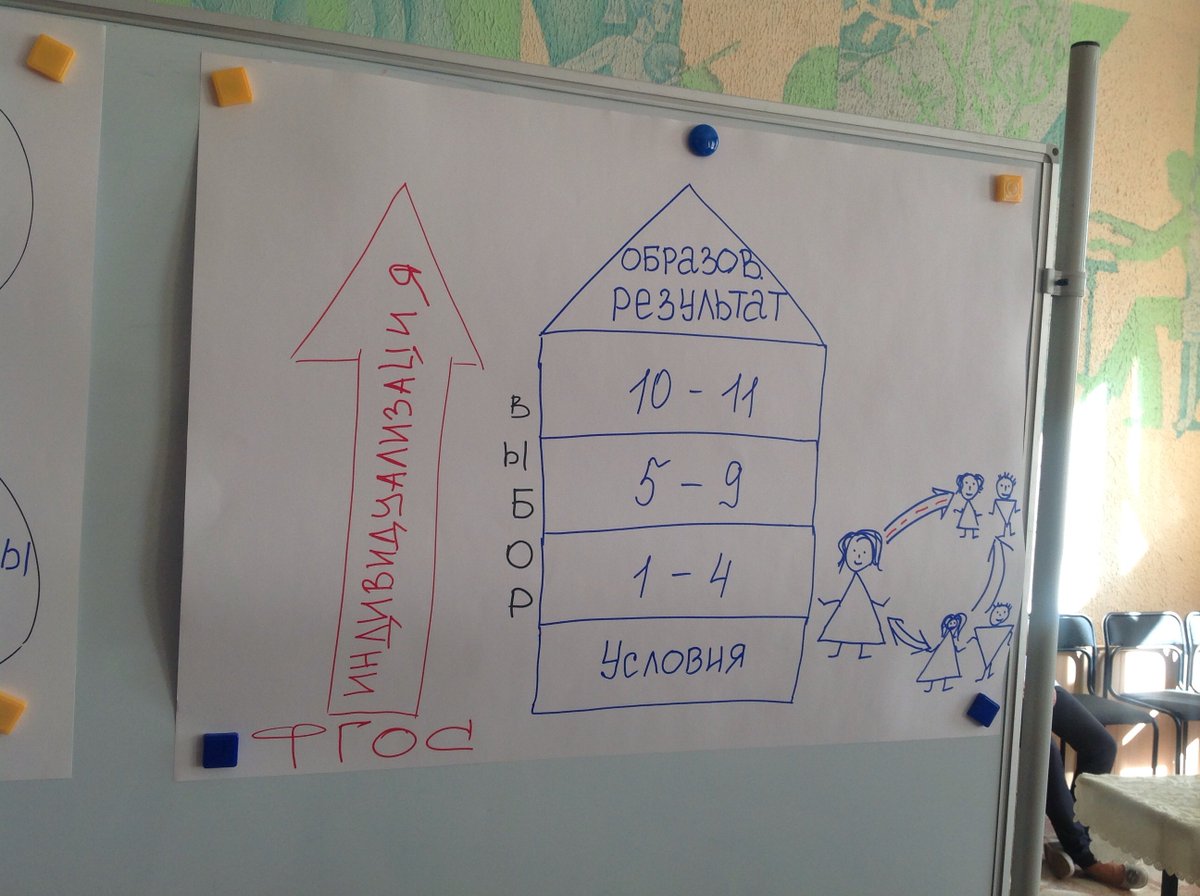 ы
ИНДИВИДУАЛИЗАЦИЯ
ФГОС
ВЫБОР
ОБРАЗОВ.
РЕЗУЛЬТАТ
10 - 11
5 - 9
1 - 4
Условия